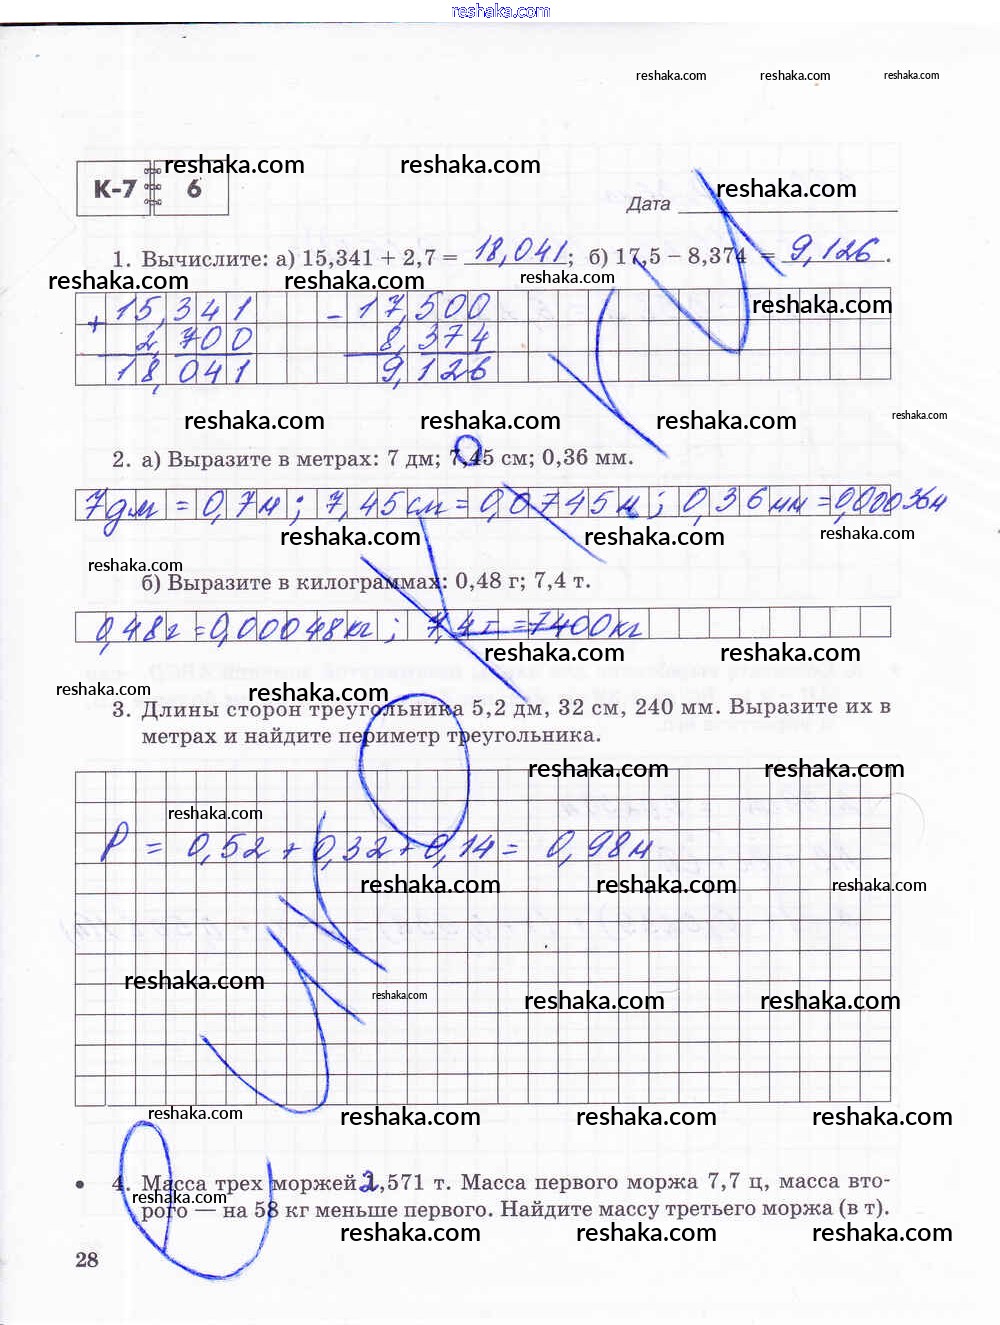 reshaka.com
reshaka.com reshaka.com reshaka.com
reshaka.com reshaka.com reshaka.com
К-7 6
Дата
1. Вычислите: а) 15,341 + 2,7 = 18,041; б) 17,5 – 8,374 = 9,126.
reshaka.com reshaka.com reshaka.com
+ 15,341 - 17,500 reshaka.com
2,700 8,374
18,041 9,126
reshaka.com reshaka.com reshaka.com reshaka.com
2. а) Выразите в метрах: 7 дм; 7,45 см; 0,36 мм.
7 дм = 0,7 м; 7,45 см = 0,0745 м; 0,36 мм = 0,00036 м
reshaka.com reshaka.com reshaka.com
reshaka.com
б) Выразите в килограммах: 0,48 г; 7,4 т.
0,48 г = 0,00048 кг; 7,4 т = 7400 кг
reshaka.com reshaka.com
reshaka.com reshaka.com
3. Длины сторон треугольника 5,2 дм, 32 см, 240 мм. Выразите их в
метрах и найдите периметр треугольника.
reshaka.com reshaka.com
reshaka.com
P = 0,52 + 0,32 + 0,14 = 0,98 м
reshaka.com reshaka.com reshaka.com
reshaka.com reshaka.com reshaka.com reshaka.com
reshaka.com reshaka.com reshaka.com reshaka.com
4. Масса трех моржей 2,571 т. Масса первого моржа 7,7 ц, масса вто-
reshaka.com
рого — на 58 кг меньше первого. Найдите массу третьего моржа (в т).
reshaka.com reshaka.com reshaka.com
28